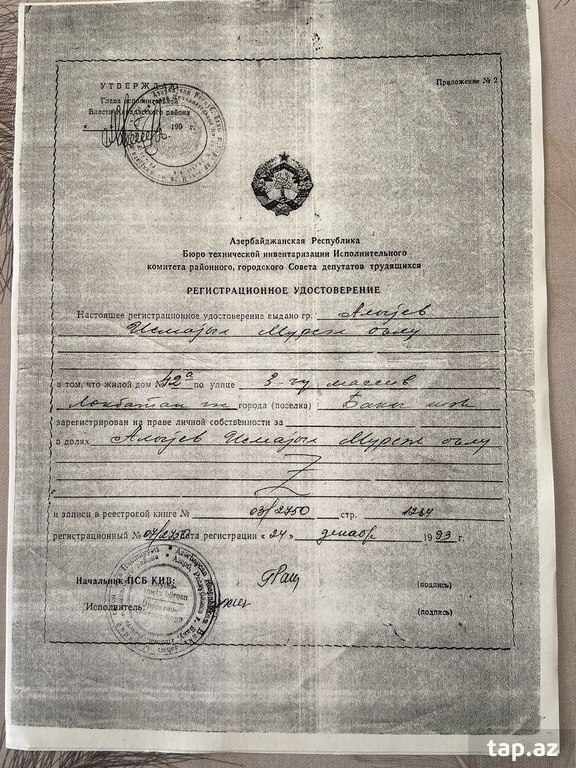 Приложение № 2
УТВЕРЖДАЮ
Глава исполнительной
Власти Карадагского района
199 г.
Азербайджанская Республика
Бюро технической инвентаризации Исполнительного
комитета районного, городского Совета депутатов трудящихся
РЕГИСТРАЦИОННОЕ УДОСТОВЕРЕНИЕ
Настоящее регистрационное удостоверение выдано гр.
Исмајыл оғлу
в том, что жилой дом № 42ª по улице 3-чу массив
Локбатан города (поселка) Бакы
зарегистрирован на праве личной собственности за
в долях Исмајыл оғлу
и записи в реестровой книге № 03/2750 стр. 1284
регистрационный № 07/2750 дата регистрации « 24 » декабр 1993 г.
Начальник ПСБ КИВ: (подпись)
Исполнитель: (подпись)
tap.az